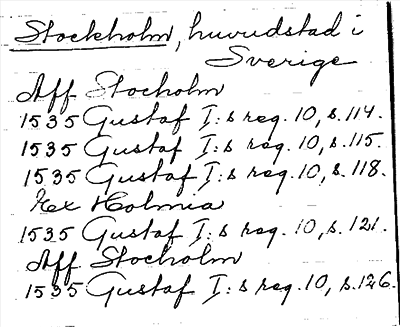 Stockholm, huvudstad i
Sverige
Aff Stocholm
1535 Gustaf I:s reg. 10, s. 114.
1535 Gustaf I:s reg. 10, s. 115.
1535 Gustaf I:s reg. 10, s. 118.
Ex Holmia
1535 Gustaf I:s reg. 10, s. 121.
Aff Stocholm
1535 Gustaf I:s reg. 10, s. 126.